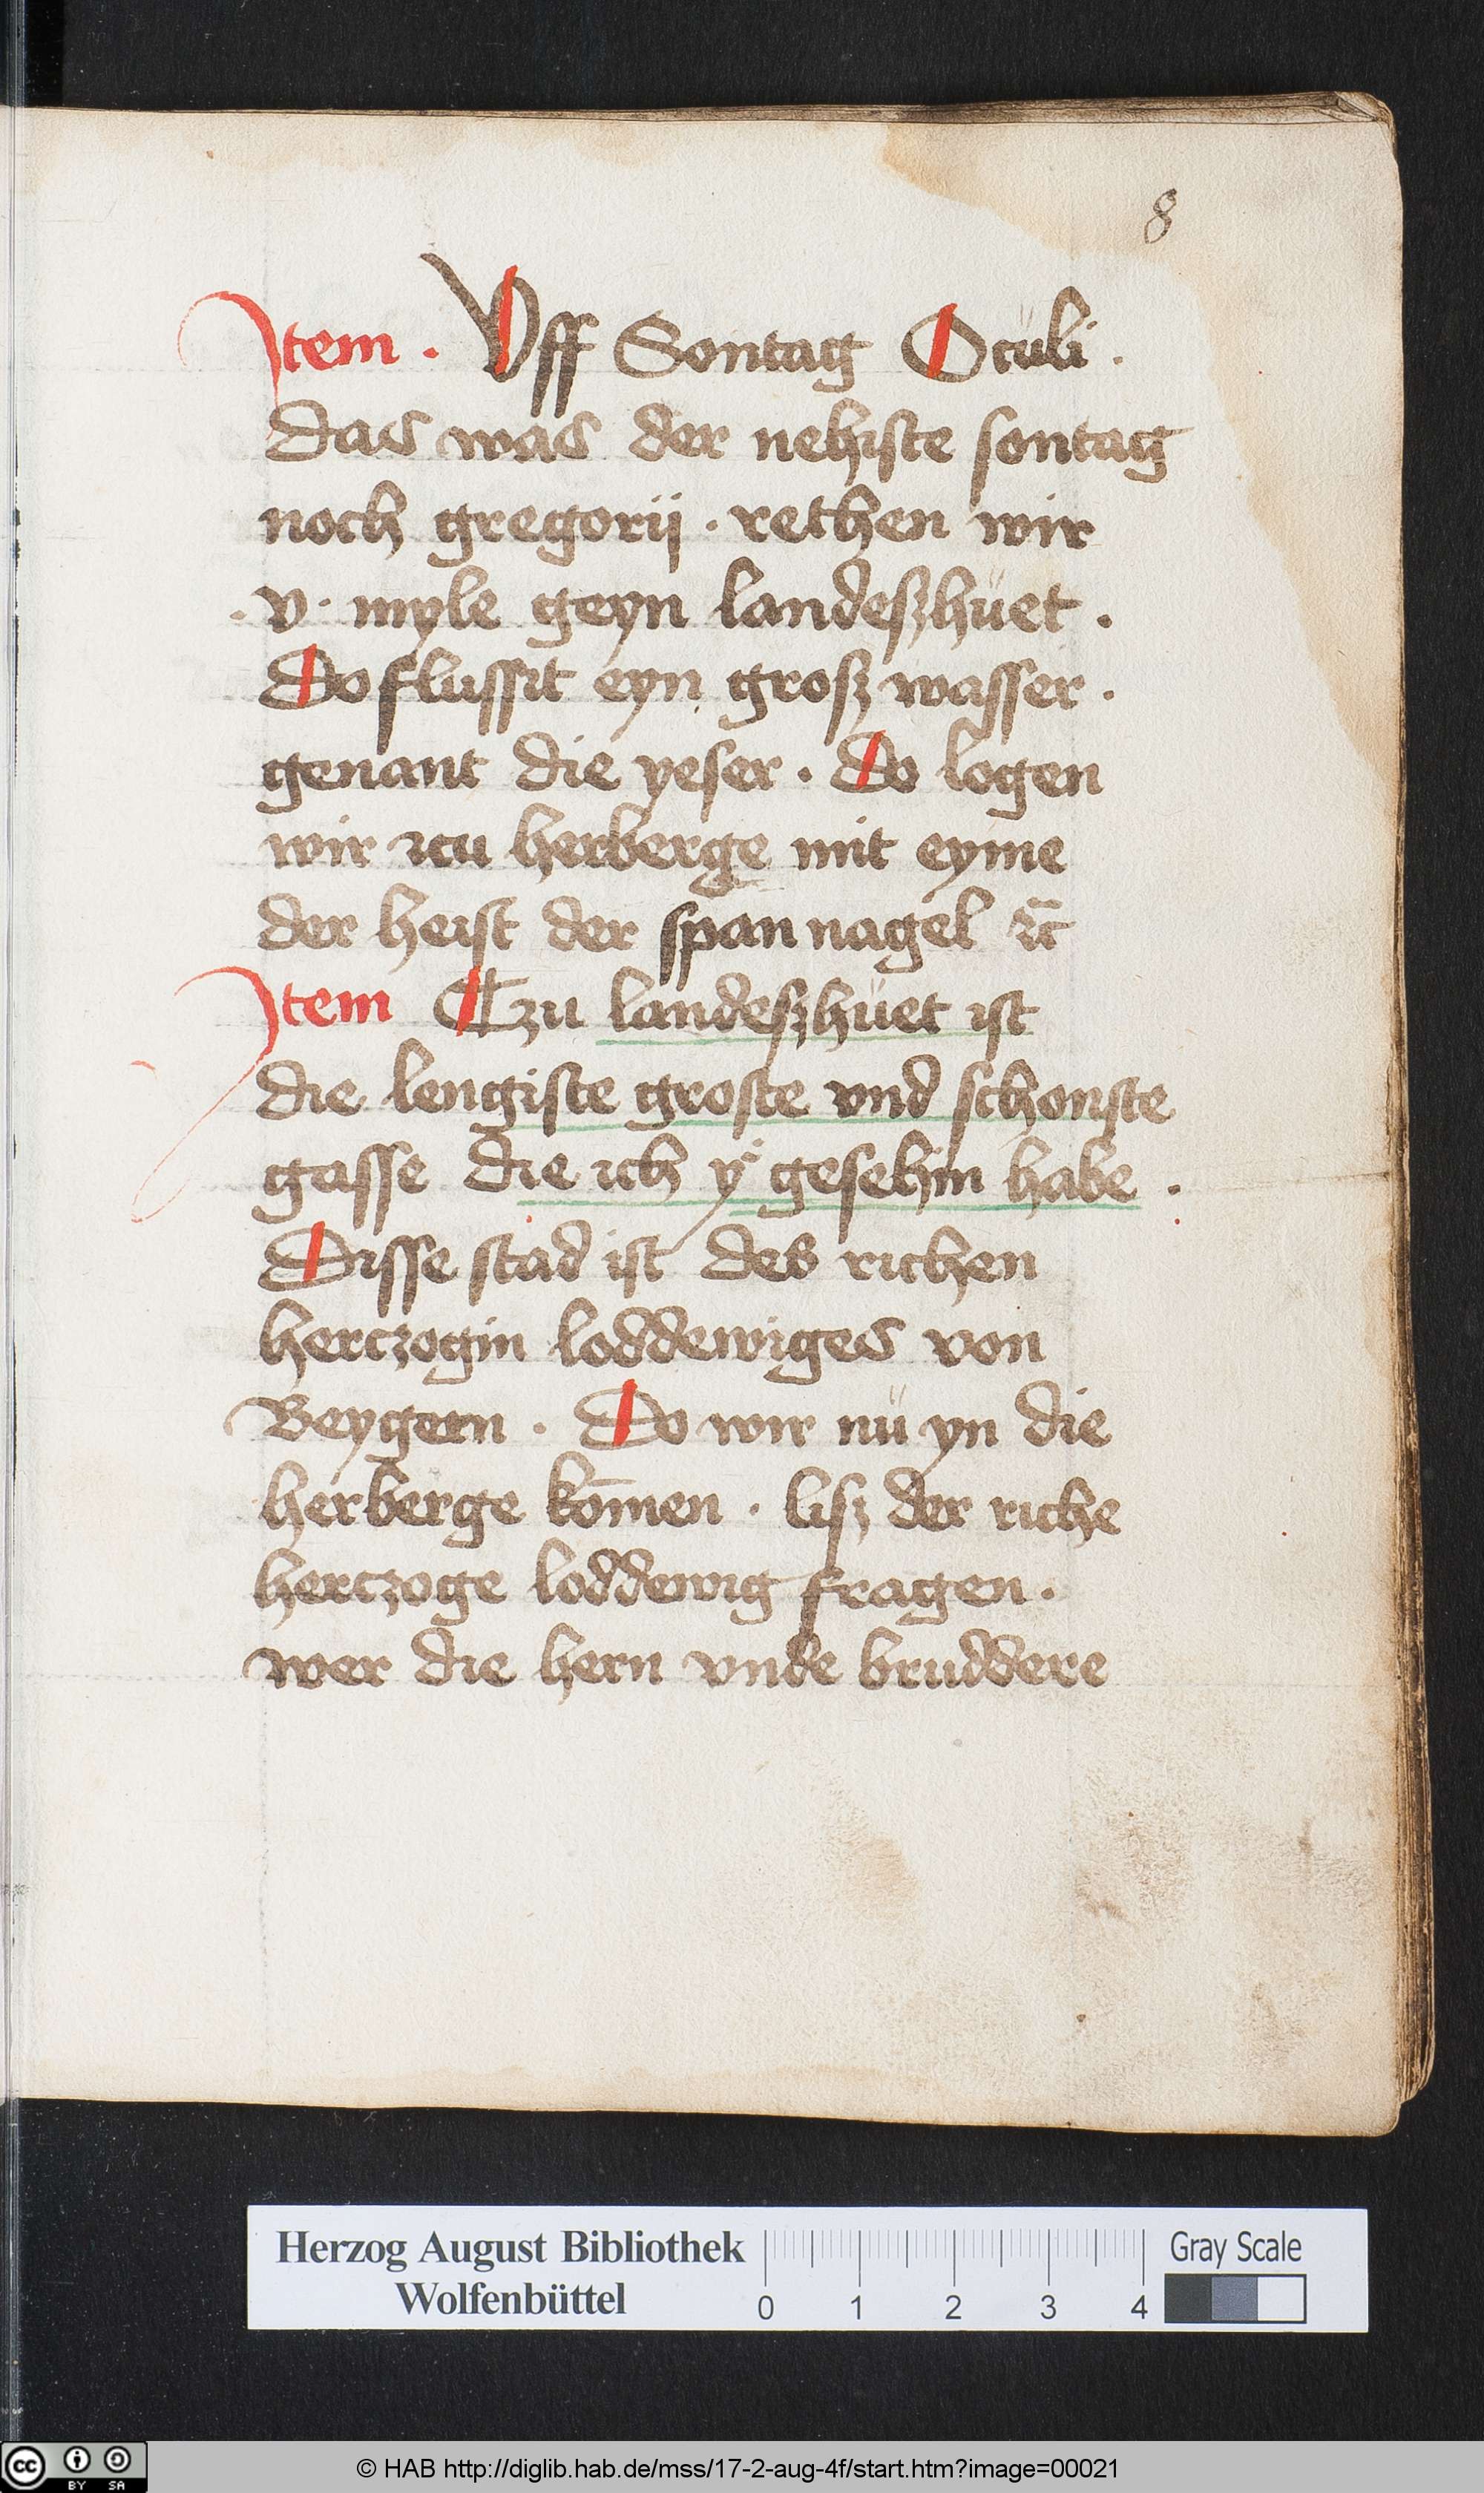 8
Jtem · Vff Sontag Oculi ·
Das was der nehiste sontag
noch gregorij · rethen wir
· v · myle geyn landeßhüet ·
Do flussit eyn groß wasser ·
genant die yeser · Do logen
wir zcu herberge mit eyme
der heist der span nagel ⁊c̄
Jtem Czu landeßhüet ist
die lengiste groste vnd schonste
gasse die ich ÿ gesehin habe ·
Disse stad ist des richen
herczogin loddewiges von
Beygern · Do wir nü yn die
herberge kōmen · liß der riche
herczoge loddewig fragen ·
wer die hern vnde bruddere
Herzog August Bibliothek
Wolfenbüttel
0 1 2 3 4
Gray Scale
cc BY SA
© HAB http://diglib.hab.de/mss/17-2-aug-4f/start.htm?image=00021